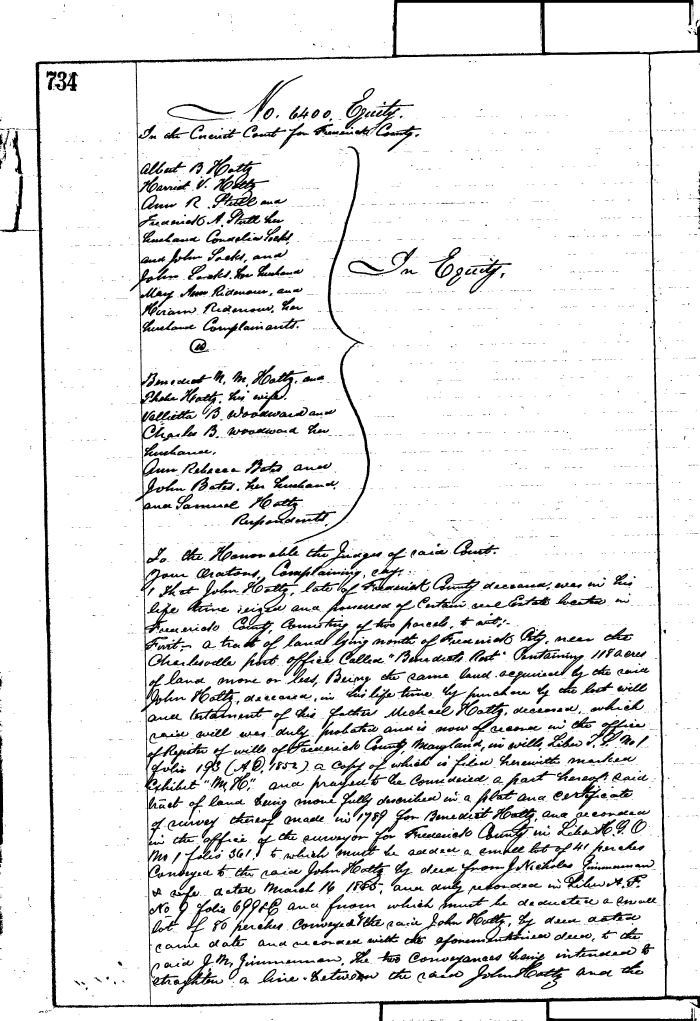 734
No. 6400. Equity.
In the Circuit Court for Frederick County.
Albert B Holtz
Harriet V. Holtz
Ann R. Stull and
Frederick A. Stull her
husband Cordelia Socks
and John Socks, and
John Socks her husband
Mary Ann Ridenour, and
Hiram Ridenour, her
husband Complainants.
vs
In Equity.
Benedict M. M. Holtz, and
Phebe Holtz, his wife.
B. Woodward and
Charles B. Woodward her
husband.
Ann Rebecca Bates and
John Bates, her husband,
and Samuel Holtz
Respondents.
To the Honorable the Judges of said Court.
Your Orators, Complaining, say:
1 That John Holtz, late of Frederick County deceased, was in his
life time seized and possessed of certain real Estate located in
Frederick County, consisting of two parcels, to wit;-
First,- a tract of land lying north of Frederick City, near the
Charlesville post office Called "Benedicts Rest" Containing 118 acres
of land more or less, Being the same land acquired by the said
John Holtz, deceased, in his life time by purchase by the last will
and testament of his father Michael Holtz, deceased, which
said will was duly probated and is now of record in the office
of Register of wills of Frederick County, Maryland, in wills, Liber No 1
folio 193 (A.D. 1852) a copy of which is filed herewith marked
Exhibit "M.H." and prayed to be considered a part hereof, said
tract of land being more fully described in a plat and certificate
of survey thereof made in 1789 for Benedict Holtz, and recorded
in the office of the surveyor for Frederick County in Liber H.G.O
No 1 folio 361; to which must be added a small lot of 41 perches
Conveyed to the said John Holtz by deed from J. Nicholas Zimmerman
& wife dated March 16 and duly recorded in Liber A.F.
No 9 folio 699 &C and from which must be deducted a small
lot of 80 perches Conveyed by the said John Holtz, by deed dated
same date and recorded with the aforementioned deed, to the
said J. N. Zimmerman, the two Conveyances being intended to
straighten a line between the said John Holtz and the